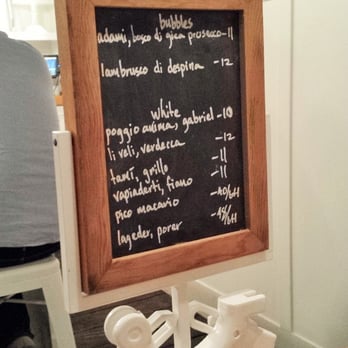 bubbles
adami, bosco di gica prosecco -11
lambrusco di despina -12
white
poggio anima, gabriel -10
li veli, verdecca -12
tamí, grillo -11
vapiaderti, fiano -11
pico macario -40/btl
lageder, porer -45/btl